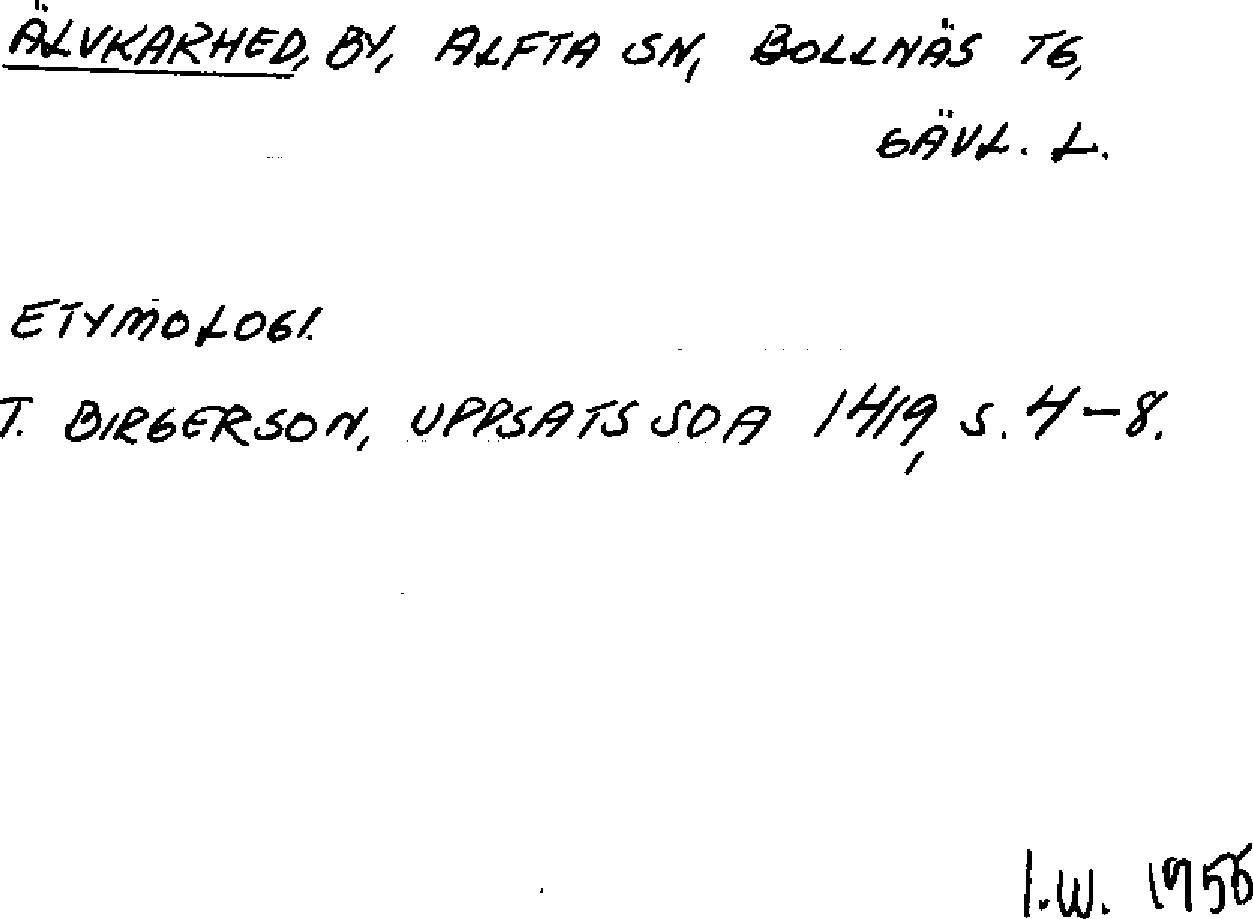 ÄLVKARHED, BY, ALFTA SN, BOLLNÄS TG,
GÄVL. L.
ETYMOLOGI.
T. BIRGERSON, UPPSATS SOA 1419, S. 4–8.
I.W. 1956